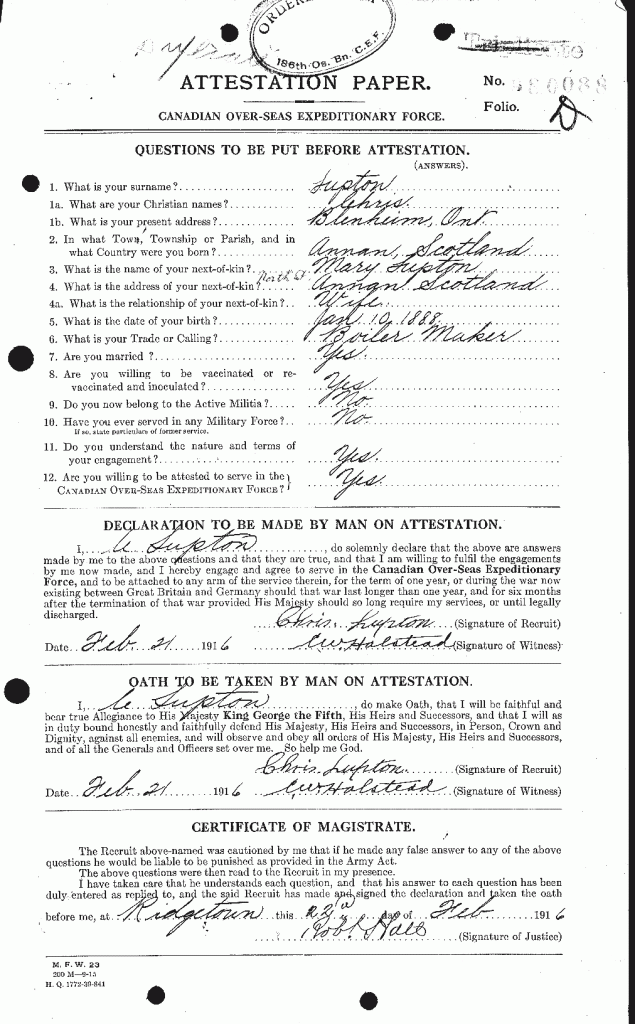 ORDER
186th Os. Bn. C.E.F.
ATTESTATION PAPER.
No.
Folio.
CANADIAN OVER-SEAS EXPEDITIONARY FORCE.
QUESTIONS TO BE PUT BEFORE ATTESTATION.
(ANSWERS).
1. What is your surname? Lupton
1a. What are your Christian names? Chris.
1b. What is your present address? Blenheim, Ont.
2. In what Town, Township or Parish, and in
what Country were you born? Annan, Scotland
3. What is the name of your next-of-kin? Mary Lupton
4. What is the address of your next-of-kin? North St. Annan Scotland
4a. What is the relationship of your next-of-kin? Wife
5. What is the date of your birth? Jan 10, 1888
6. What is your Trade or Calling? Boiler Maker
7. Are you married? Yes.
8. Are you willing to be vaccinated or re-
vaccinated and inoculated? Yes
9. Do you now belong to the Active Militia? No.
10. Have you ever served in any Military Force? No.
If so, state particulars of former service.
11. Do you understand the nature and terms of
your engagement? Yes.
12. Are you willing to be attested to serve in the
CANADIAN OVER-SEAS EXPEDITIONARY FORCE? Yes.
DECLARATION TO BE MADE BY MAN ON ATTESTATION.
I, C Lupton, do solemnly declare that the above are answers
made by me to the above questions and that they are true, and that I am willing to fulfil the engagements
by me now made, and I hereby engage and agree to serve in the Canadian Over-Seas Expeditionary
Force, and to be attached to any arm of the service therein, for the term of one year, or during the war now
existing between Great Britain and Germany should that war last longer than one year, and for six months
after the termination of that war provided His Majesty should so long require my services, or until legally
discharged.
Chris. Lupton (Signature of Recruit)
Date Feb 21 1916 C W Halstead (Signature of Witness)
OATH TO BE TAKEN BY MAN ON ATTESTATION.
I, C Lupton, do make Oath, that I will be faithful and
bear true Allegiance to His Majesty King George the Fifth, His Heirs and Successors, and that I will as
in duty bound honestly and faithfully defend His Majesty, His Heirs and Successors, in Person, Crown and
Dignity, against all enemies, and will observe and obey all orders of His Majesty, His Heirs and Successors,
and of all the Generals and Officers set over me. So help me God.
Chris. Lupton (Signature of Recruit)
Date Feb 21 1916 C W Halstead (Signature of Witness)
CERTIFICATE OF MAGISTRATE.
The Recruit above-named was cautioned by me that if he made any false answer to any of the above
questions he would be liable to be punished as provided in the Army Act.
The above questions were then read to the Recruit in my presence.
I have taken care that he understands each question, and that his answer to each question has been
duly entered as replied to, and the said Recruit has made and signed the declaration and taken the oath
before me, at Ridgetown this 22 day of Feb 1916
Robt Hall (Signature of Justice)
M. F. W. 23
200 M—9-15
H. Q. 1772-39-841